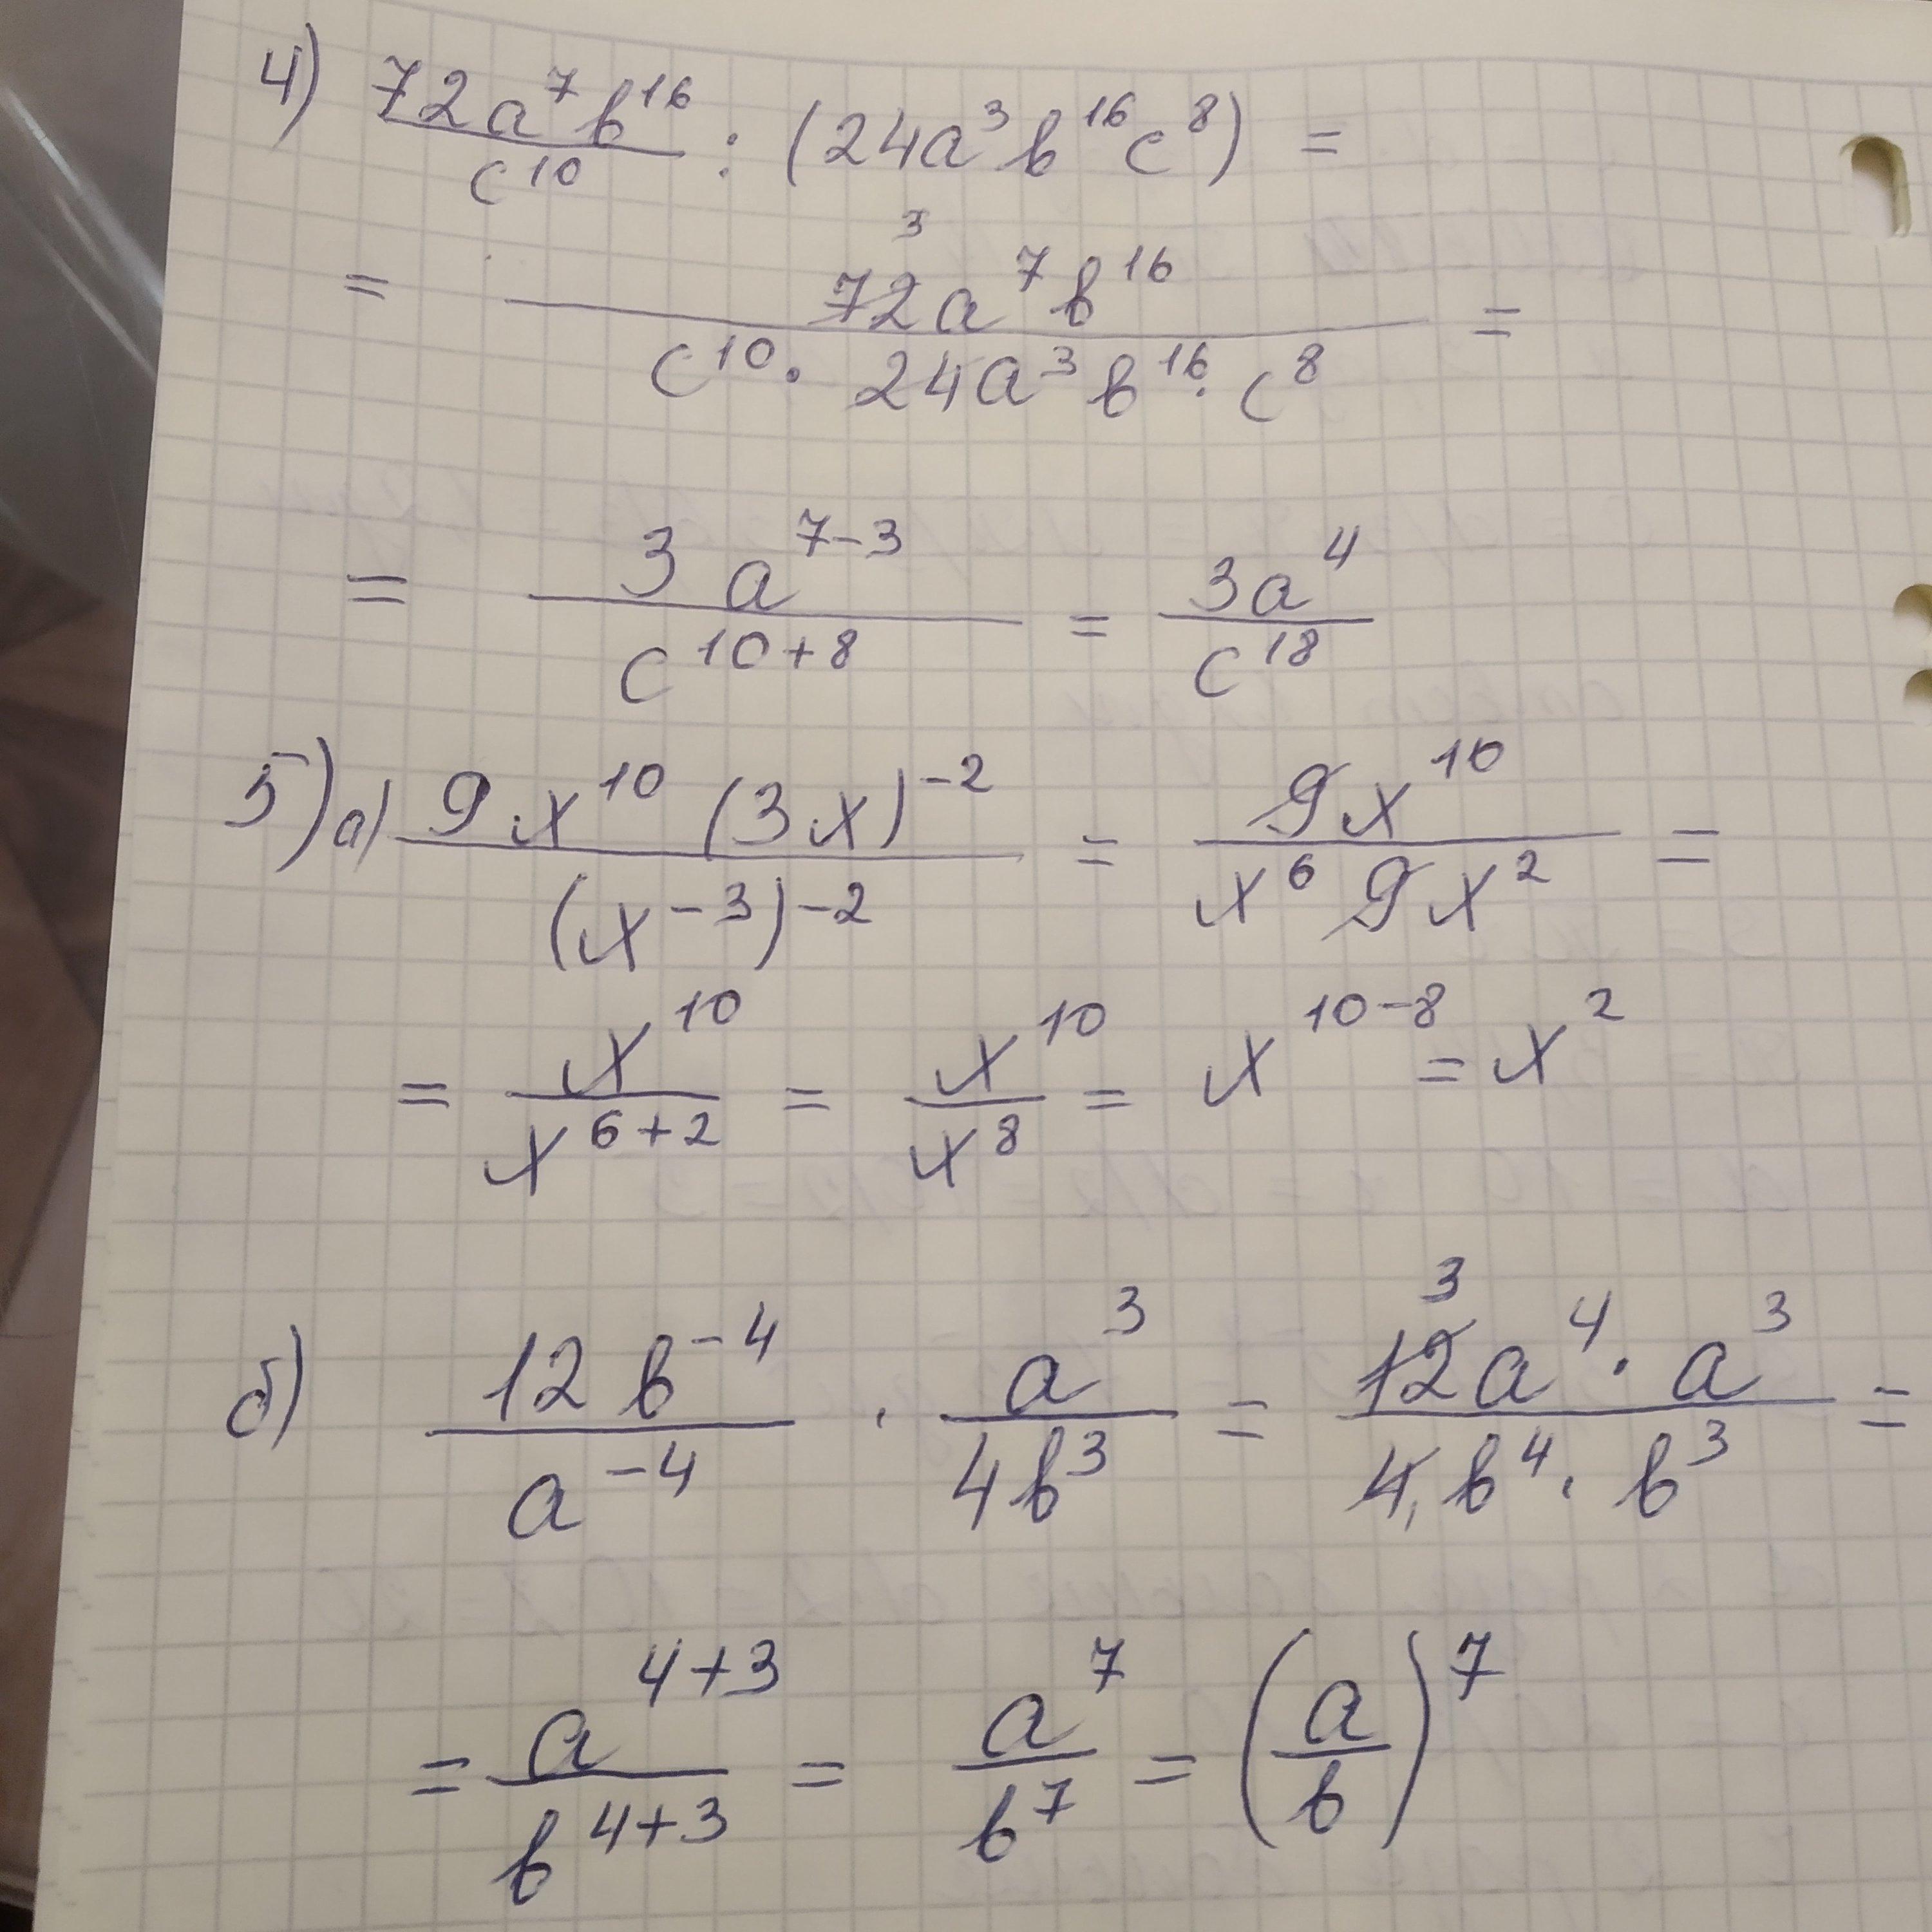 4) \frac{72a^7b^{16}}{c^{10}} : (24a^3b^{16}c^8) =
= \frac{\overset{3}{72}a^7b^{16}}{c^{10} \cdot 24a^3b^{16} \cdot c^8} =
= \frac{3a^{7-3}}{c^{10+8}} = \frac{3a^4}{c^{18}}
5) а) \frac{9x^{10}(3x)^{-2}}{(x^{-3})^{-2}} = \frac{9x^{10}}{x^6 9x^2} =
= \frac{x^{10}}{x^{6+2}} = \frac{x^{10}}{x^8} = x^{10-8} = x^2
б) \frac{12b^{-4}}{a^{-4}} \cdot \frac{a^3}{4b^3} = \frac{\overset{3}{12}a^4 \cdot a^3}{4b^4 \cdot b^3} =
= \frac{a^{4+3}}{b^{4+3}} = \frac{a^7}{b^7} = \left(\frac{a}{b}\right)^7